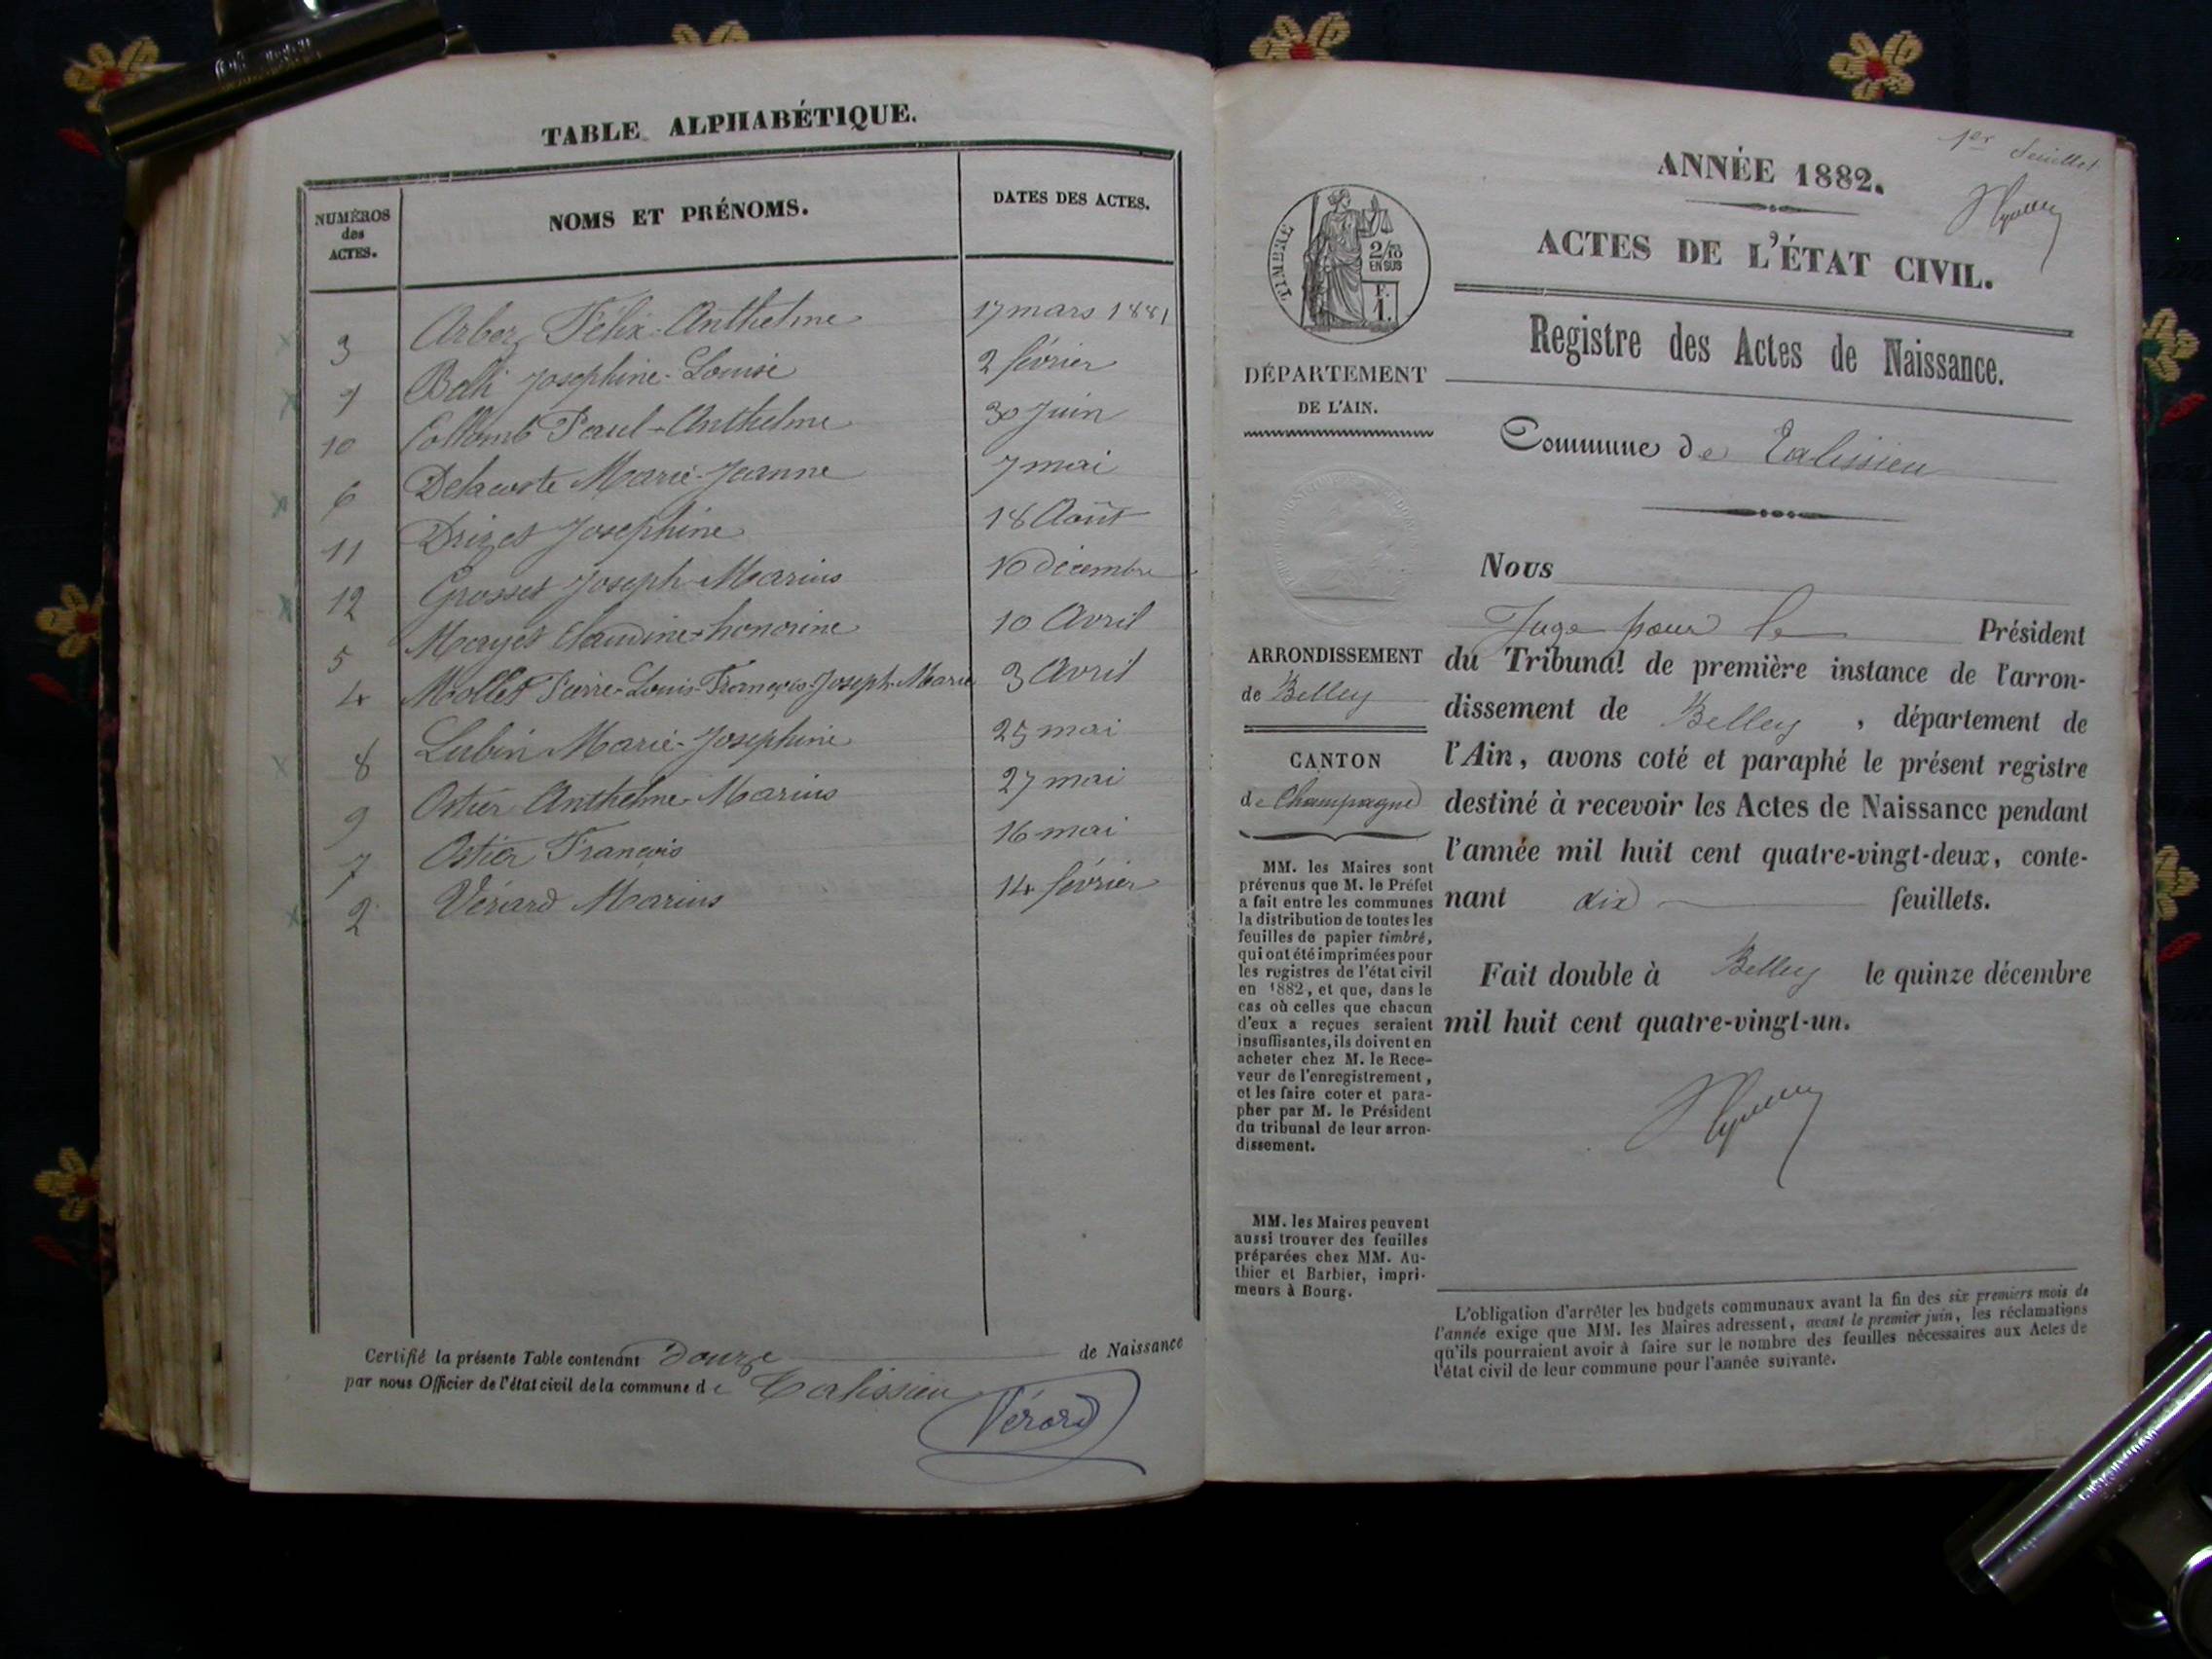 TABLE ALPHABÉTIQUE.
NUMÉROS des ACTES.
NOMS ET PRÉNOMS.
DATES DES ACTES.
3 Arbez Félix-Anthelme 17 mars 1881
1 Balli Josephine-Louise 2 février
10 Collomb Paul-Anthelme 30 Juin
6 Delacoste Marie-Jeanne 7 mai
11 Drizet Josephine 18 Août
12 Grosset Joseph-Marius 10 décembre
5 Mayet Claudine-honorine 10 Avril
4 Mollet Pierre-Louis-François-Joseph-Marie 3 Avril
8 Lubin Marie-Josephine 25 mai
9 Ostier Anthelme-Marius 27 mai
7 Ostier François 16 mai
2 Vérard Marius 14 février
Certifié la présente Table contenant Douze de Naissance
par nous Officier de l'état civil de la commune de Talissieu
Vérard
1er feuillet
ANNÉE 1882.
ACTES DE L'ÉTAT CIVIL.
TIMBRE
2/10
EN SUS
F.
1.
Registre des Actes de Naissance.
DÉPARTEMENT
DE L'AIN.
Commune de Talissieu
ARRONDISSEMENT
de Belley
CANTON
de Champagne
MM. les Maires sont
prévenus que M. le Préfet
a fait entre les communes
la distribution de toutes les
feuilles de papier timbré,
qui ont été imprimées pour
les registres de l'état civil
en 1882, et que, dans le
cas où celles que chacun
d'eux a reçues seraient
insuffisantes, ils doivent en
acheter chez M. le Rece-
veur de l'enregistrement,
et les faire coter et para-
pher par M. le Président
du tribunal de leur arron-
dissement.
MM. les Maires peuvent
aussi trouver des feuilles
préparées chez MM. Au-
thier et Barbier, impri-
meurs à Bourg.
Nous
Juge pour le Président
du Tribunal de première instance de l'arron-
dissement de Belley, département de
l'Ain, avons coté et paraphé le présent registre
destiné à recevoir les Actes de Naissance pendant
l'année mil huit cent quatre-vingt-deux, conte-
nant dix feuillets.
Fait double à Belley le quinze décembre
mil huit cent quatre-vingt-un.
L'obligation d'arrêter les budgets communaux avant la fin des six premiers mois de
l'année exige que MM. les Maires adressent, avant le premier juin, les réclamations
qu'ils pourraient avoir à faire sur le nombre des feuilles nécessaires aux Actes de
l'état civil de leur commune pour l'année suivante.